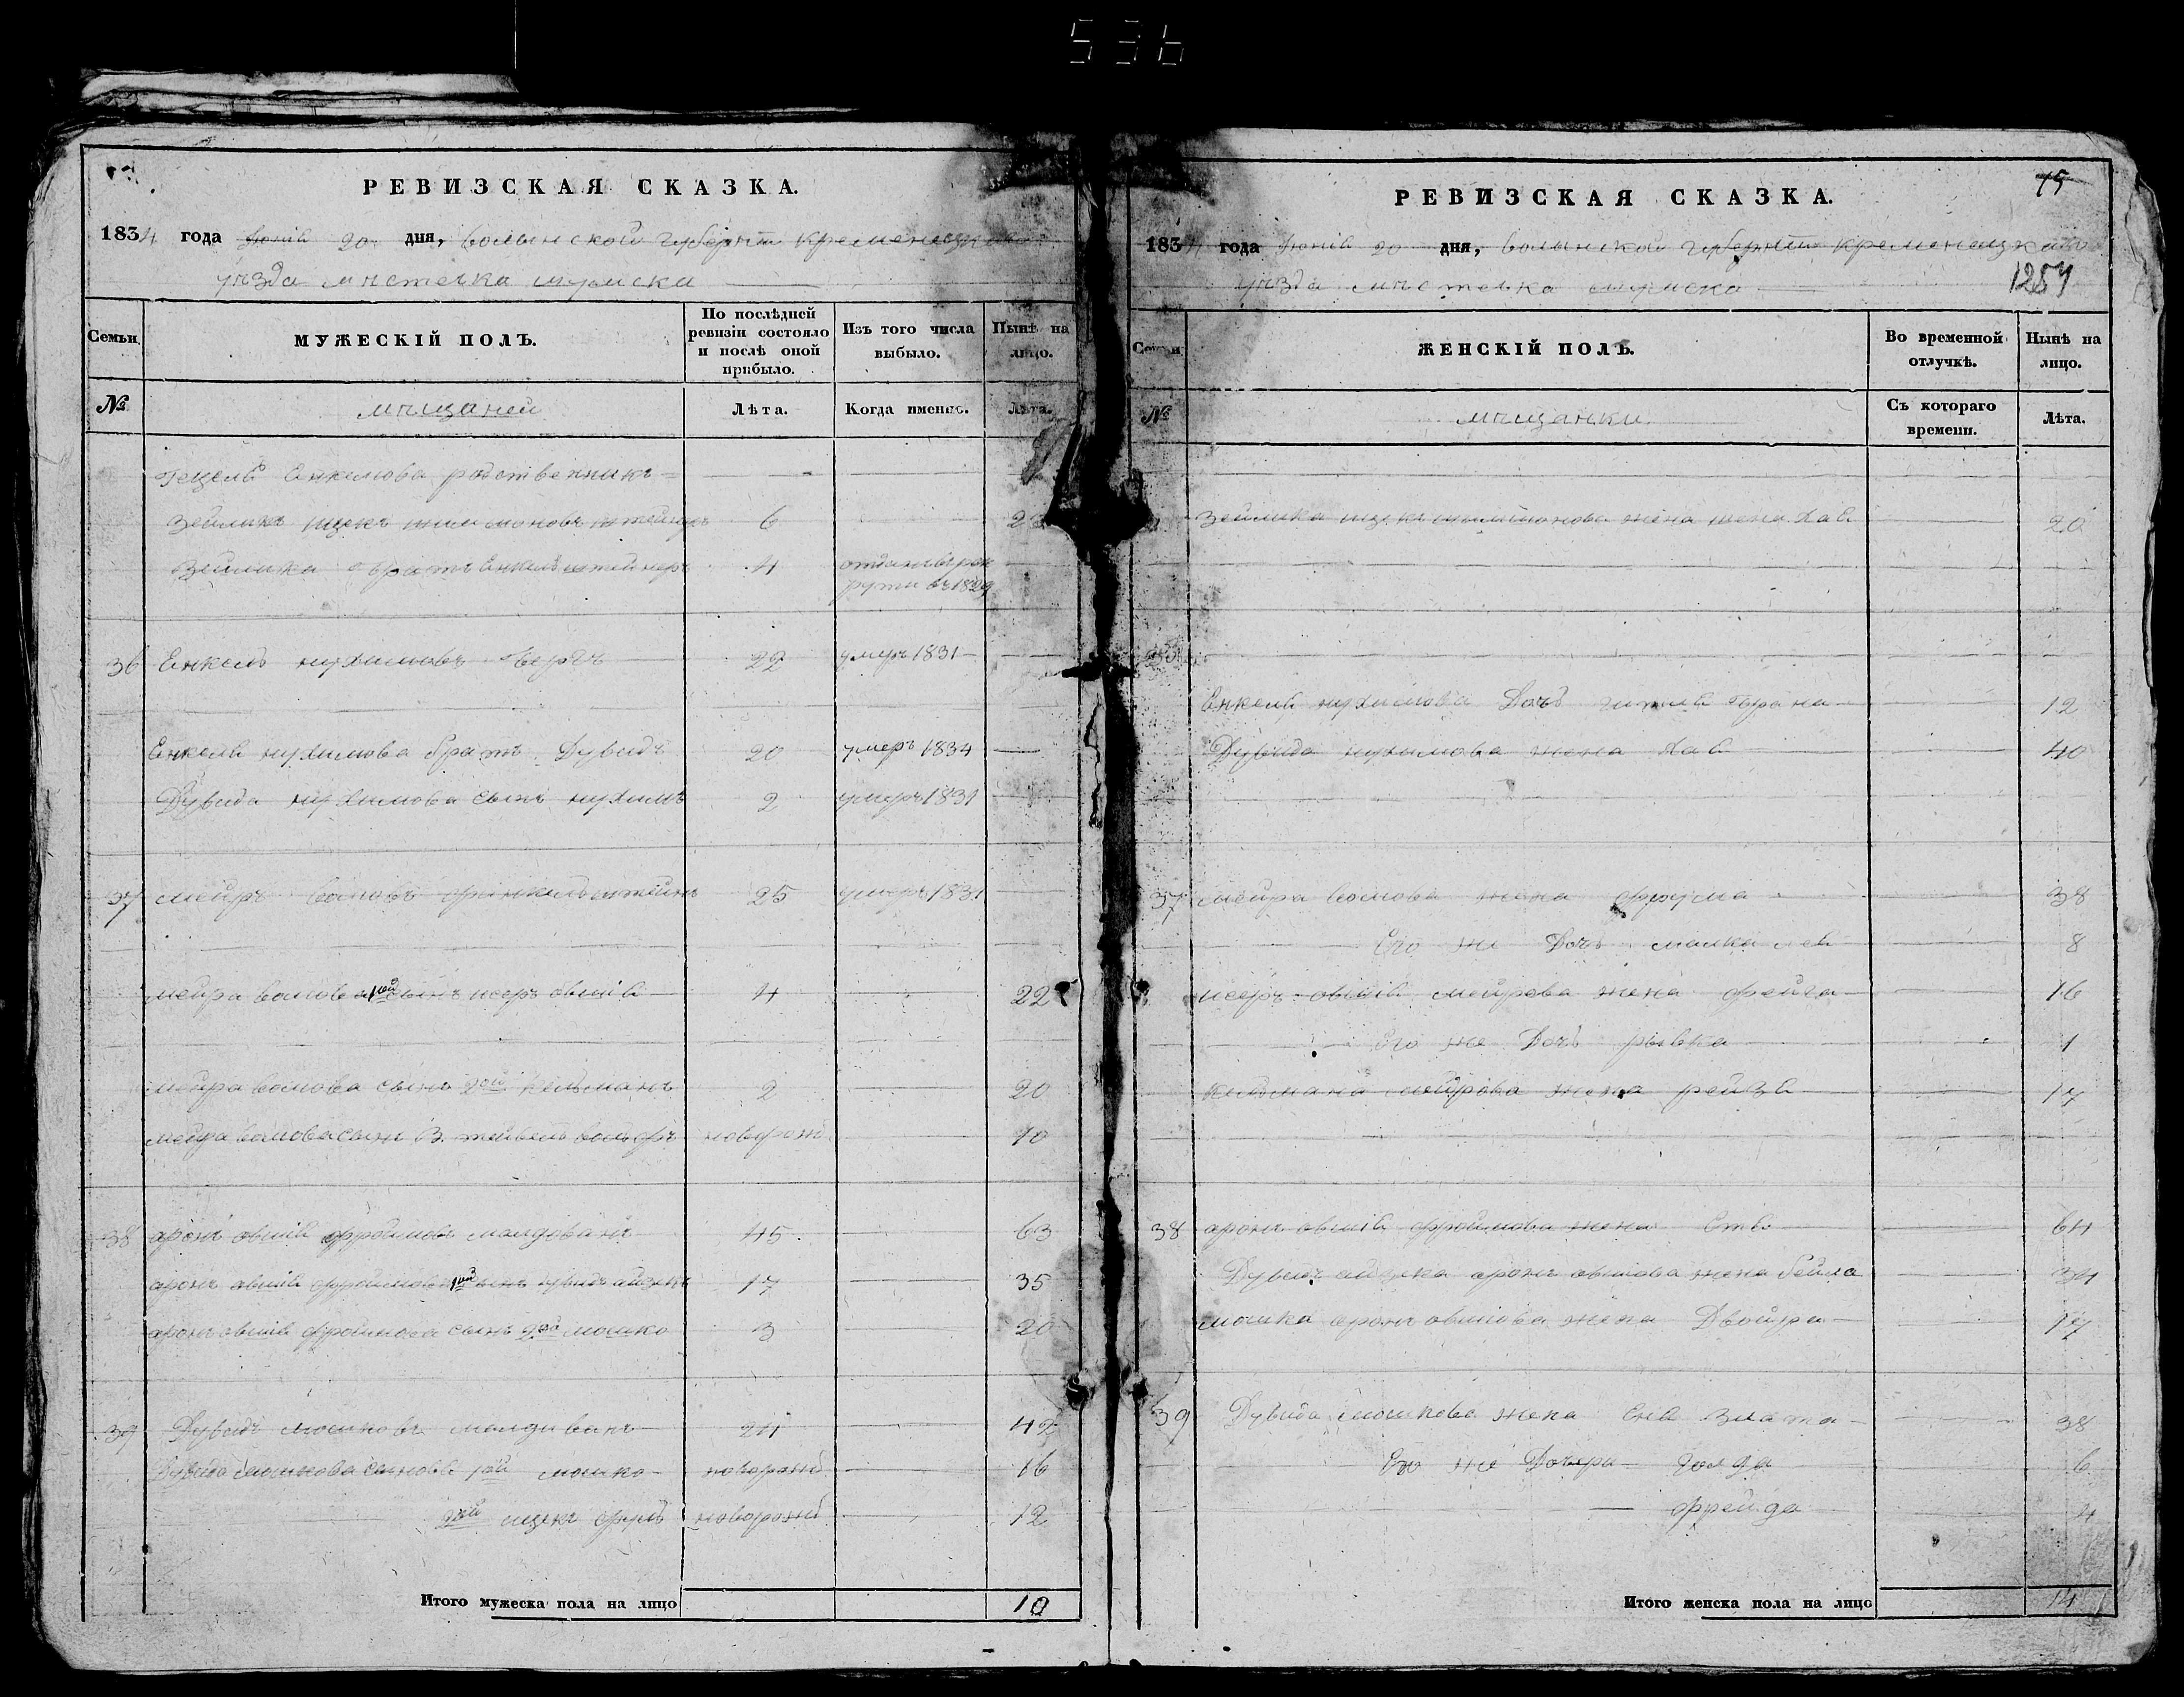 536
РЕВИЗСКАЯ СКАЗКА.
1834 года Июня 20 дня, Волынской губернии Кременецкаго
уезда местечка Шумска
Семьи.
МУЖЕСКІЙ ПОЛЪ.
По послѣдней ревизіи состояло и послѣ оной прибыло.
Изъ того числа выбыло.
Нынѣ на лицо.
№
мещаней
Лѣта.
Когда именно.
Лѣта.
Гецель Енкелова родственникъ
Зейликъ ицекъ 6
Зейлика братъ Енкель штейнеръ 4 отданъ въ рекруты въ 1829
36 Енкель нухимовъ 22 умеръ 1831
Енкеля нухимова братъ Дувидъ 20 умеръ 1834
Дувида нухимова сынъ нухимъ 2 умеръ 1831
37 мейръ волковъ финкельштейнъ 25 умеръ 1831
мейра волкова 1ой сынъ исеръ овшій 4 22
мейра волкова сынъ 2ой кельманъ 2 20
мейра волкова сынъ 3. новорож 10
38 аронъ овшій фроимовъ молдованъ 45 63
аронъ овшій фроимова 1ой сынъ дувидъ айзикъ 17 35
аронъ овшія фроимова сынъ 2ой мошко 3 20
39 Дувидъ мошковъ молдованъ 24 42
Дувида мошкова сыновя 1ой мошко новорожд 16
2ой ицекъ новорожд 12
Итого мужеска пола на лицо 10
15
РЕВИЗСКАЯ СКАЗКА.
1834 года Июня 20 дня, Волынской губернии Кременецкаго
уезда местечка Шумска
1257
Семьи
ЖЕНСКІЙ ПОЛЪ.
Во временной отлучкѣ.
Нынѣ на лицо.
№
мещанки
Съ котораго времени.
Лѣта.
Зейлика ицека жена Хая 20
Енкеля нухимова Дочь 12
Дувида нухимова жена Хая 40
37 мейра волкова жена фрума 38
Его же Дочь малка лея 8
исеръ овшія мейрова жена фейга 16
Его же Дочь рывка 1
кельмана мейрова жена рейзя 17
38 аронъ овшія фроимова жена 64
Дувидъ айзика аронъ овшіова жена бейла 34
мошка аронъ овшіова жена Двойра 17
39 Дувида мошкова жена злата 38
Его же Дочери голда 6
фрейда 4
Итого женска пола на лицо 14